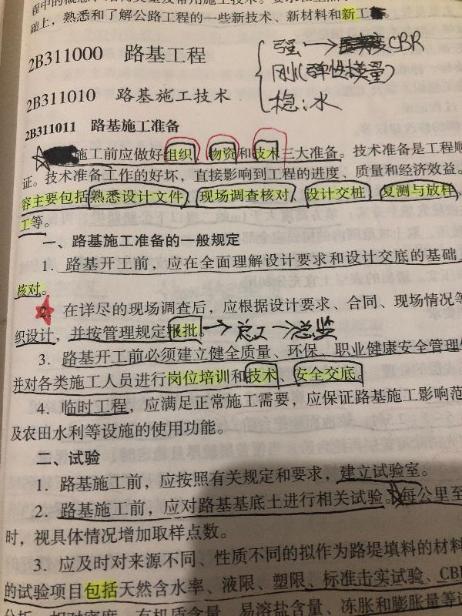 上，熟悉和了解公路工程的一些新技术、新材料和新工
2B311000 路基工程
强→CBR
刚(弹性模量)
稳:水
2B311010 路基施工技术
2B311011 路基施工准备
施工前应做好组织、物资和技术三大准备。技术准备是工程顺
证。技术准备工作的好坏，直接影响到工程的进度、质量和经济效益。
容主要包括熟悉设计文件、现场调查核对、设计交桩、复测与放样、
工等。
一、路基施工准备的一般规定
1. 路基开工前，应在全面理解设计要求和设计交底的基础
核对。
2. 在详尽的现场调查后，应根据设计要求、合同、现场情况等
织设计，并按管理规定报批→总工→总监
3. 路基开工前必须建立健全质量、环保、职业健康安全管理
并对各类施工人员进行岗位培训和技术、安全交底。
4. 临时工程，应满足正常施工需要，应保证路基施工影响范
及农田水利等设施的使用功能。
二、试验
1. 路基施工前，应按照有关规定和要求，建立试验室。
2. 路基施工前，应对路基基底土进行相关试验 每公里至
时，视具体情况增加取样点数。
3. 应及时对来源不同、性质不同的拟作为路堤填料的材料
的试验项目包括天然含水率、液限、塑限、标准击实试验、CB
分析、相对密度、有机质含量、易溶盐含量、冻胀和膨胀量等